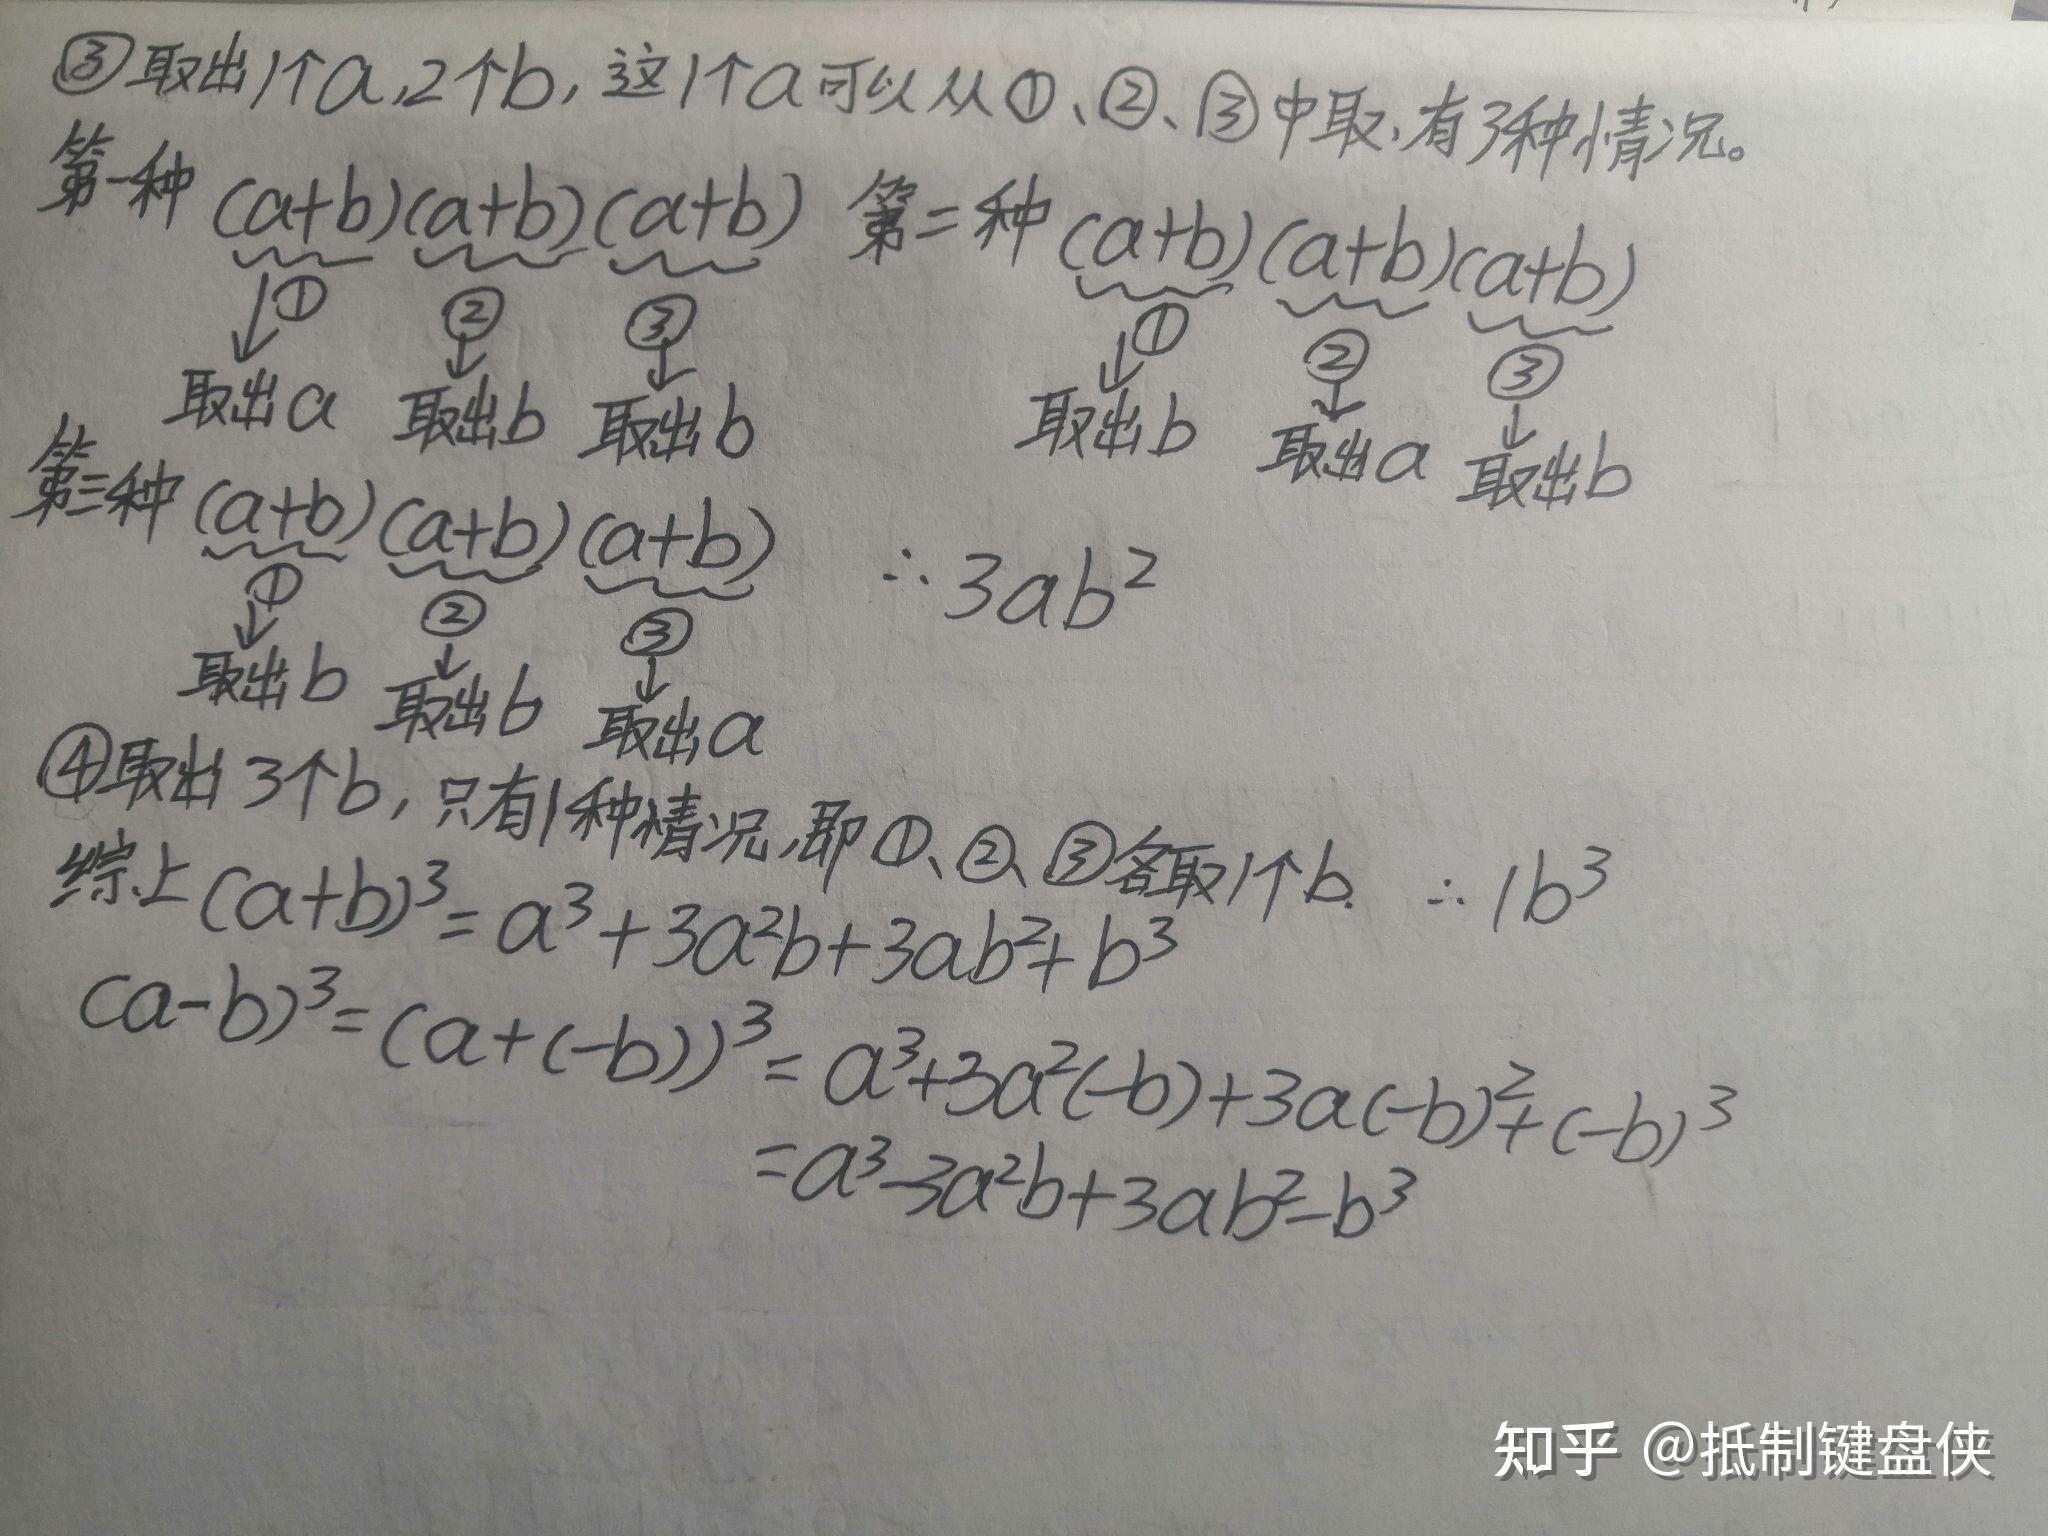 ③取出1个a,2个b,这1个a可以从①、②、③中取,有3种情况。
第一种 (a+b)(a+b)(a+b) 第二种 (a+b)(a+b)(a+b)
① ② ③ ① ② ③
取出a 取出b 取出b 取出b 取出a 取出b
第三种 (a+b)(a+b)(a+b) ∴3ab²
① ② ③
取出b 取出b 取出a
④取出3个b,只有1种情况,即①、②、③各取1个b. ∴1b³
综上(a+b)³=a³+3a²b+3ab²+b³
(a-b)³=(a+(-b))³=a³+3a²(-b)+3a(-b)²+(-b)³
=a³-3a²b+3ab²-b³
知乎 @抵制键盘侠